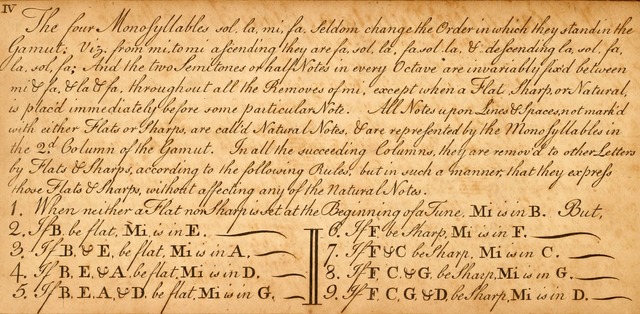 IV
The four Monosyllables sol, la, mi, fa, seldom change the Order in which they stand in the
Gamut; Viz. from mi, to mi ascending they are fa, sol, la, fa sol la, & descending la, sol, fa,
la, sol, fa; And the two Semitones or half Notes in every Octave are invariably fix'd between
mi & fa, & la & fa, throughout all the Removes of mi, except when a Flat, Sharp or Natural,
is plac'd immediately before some particular Note. All Notes upon Lines & Spaces, not mark'd
with either Flats or Sharps, are call'd Natural Notes, & are represented by the Monosyllables in
the 2d. Column of the Gamut. In all the succeeding Columns, they are remov'd to other Letters
by Flats & Sharps, according to the following Rules, but in such a manner, that they express
those Flats & Sharps, without affecting any of the Natural Notes.
1. When neither a Flat nor Sharp is set at the Beginning of a Tune, Mi is in B. But,
2. If B, be flat, Mi is in E.
3. If B, & E, be flat, Mi is in A.
4. If B, E, & A, be flat, Mi is in D.
5. If B, E, A, & D, be flat, Mi is in G.
6. If F be Sharp, Mi is in F.
7. If F & C be Sharp, Mi is in C.
8. If F, C, & G, be Sharp, Mi is in G.
9. If F, C, G, & D, be Sharp, Mi is in D.